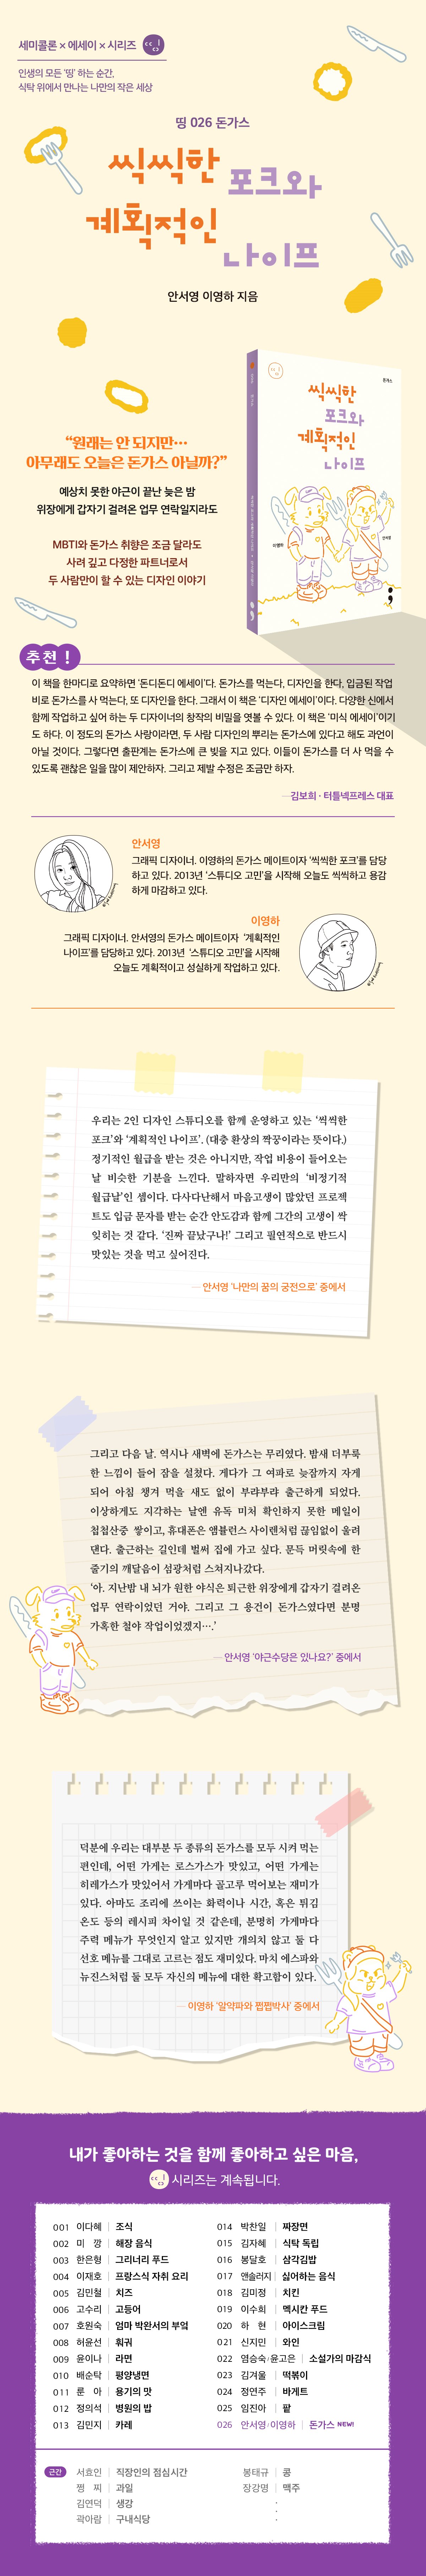 세미콜론 × 에세이 × 시리즈
인생의 모든 '띵' 하는 순간,
식탁 위에서 만나는 나만의 작은 세상
띵 026 돈가스
씩씩한
포크와
계획적인
나이프
안서영 이영하 지음
돈가스
씩씩한
포크와
계획적인
나이프
이영하
안서영
“원래는 안 되지만…
아무래도 오늘은 돈가스 아닐까?”
예상치 못한 야근이 끝난 늦은 밤
위장에게 갑자기 걸려온 업무 연락일지라도
MBTI와 돈가스 취향은 조금 달라도
사려 깊고 다정한 파트너로서
두 사람만이 할 수 있는 디자인 이야기
추천!
이 책을 한마디로 요약하면 '돈디돈디 에세이'다. 돈가스를 먹는다, 디자인을 한다, 입금된 작업
비로 돈가스를 사 먹는다, 또 디자인을 한다. 그래서 이 책은 '디자인 에세이'이다. 다양한 신에서
함께 작업하고 싶어 하는 두 디자이너의 창작의 비밀을 엿볼 수 있다. 이 책은 '미식 에세이'이기
도 하다. 이 정도의 돈가스 사랑이라면, 두 사람 디자인의 뿌리는 돈가스에 있다고 해도 과언이
아닐 것이다. 그렇다면 출판계는 돈가스에 큰 빚을 지고 있다. 이들이 돈가스를 더 사 먹을 수
있도록 괜찮은 일을 많이 제안하자. 그리고 제발 수정은 조금만 하자.
—김보희 · 터틀넥프레스 대표
안서영
그래픽 디자이너. 이영하의 돈가스 메이트이자 '씩씩한 포크'를 담당
하고 있다. 2013년 '스튜디오 고민'을 시작해 오늘도 씩씩하고 용감
하게 마감하고 있다.
이영하
그래픽 디자이너. 안서영의 돈가스 메이트이자 '계획적인
나이프'를 담당하고 있다. 2013년 '스튜디오 고민'을 시작해
오늘도 계획적이고 성실하게 작업하고 있다.
우리는 2인 디자인 스튜디오를 함께 운영하고 있는 '씩씩한
포크'와 '계획적인 나이프'. (대충 환상의 짝꿍이라는 뜻이다.)
정기적인 월급을 받는 것은 아니지만, 작업 비용이 들어오는
날 비슷한 기분을 느낀다. 말하자면 우리만의 '비정기적
월급날'인 셈이다. 다사다난해서 마음고생이 많았던 프로젝
트도 입금 문자를 받는 순간 안도감과 함께 그간의 고생이 싹
잊히는 것 같다. '진짜 끝났구나!' 그리고 필연적으로 반드시
맛있는 것을 먹고 싶어진다.
— 안서영 '나만의 꿈의 궁전으로' 중에서
그리고 다음 날. 역시나 새벽에 돈가스는 무리였다. 밤새 더부룩
한 느낌이 들어 잠을 설쳤다. 게다가 그 여파로 늦잠까지 자게
되어 아침 챙겨 먹을 새도 없이 부랴부랴 출근하게 되었다.
이상하게도 지각하는 날엔 유독 미처 확인하지 못한 메일이
첩첩산중 쌓이고, 휴대폰은 앰뷸런스 사이렌처럼 끊임없이 울려
댄다. 출근하는 길인데 벌써 집에 가고 싶다. 문득 머릿속에 한
줄기의 깨달음이 섬광처럼 스쳐지나갔다.
'아. 지난밤 내 뇌가 원한 야식은 퇴근한 위장에게 갑자기 걸려온
업무 연락이었던 거야. 그리고 그 용건이 돈가스였다면 분명
가혹한 철야 작업이었겠지….'
— 안서영 '야근수당은 있나요?' 중에서
덕분에 우리는 대부분 두 종류의 돈가스를 모두 시켜 먹는
편인데, 어떤 가게는 로스가스가 맛있고, 어떤 가게는
히레가스가 맛있어서 가게마다 골고루 먹어보는 재미가
있다. 아마도 조리에 쓰이는 화력이나 시간, 혹은 튀김
온도 등의 레시피 차이일 것 같은데, 분명히 가게마다
주력 메뉴가 무엇인지 알고 있지만 개의치 않고 둘 다
선호 메뉴를 그대로 고르는 점도 재미있다. 마치 에스파와
뉴진스처럼 둘 모두 자신의 메뉴에 대한 확고함이 있다.
— 이영하 '알약파와 펩펩박사' 중에서
내가 좋아하는 것을 함께 좋아하고 싶은 마음,
시리즈는 계속됩니다.
001 이다혜 | 조식
002 미 깡 | 해장 음식
003 한은형 | 그리너리 푸드
004 이재호 | 프랑스식 자취 요리
005 김민철 | 치즈
006 고수리 | 고등어
007 호원숙 | 엄마 박완서의 부엌
008 허윤선 | 훠궈
009 윤이나 | 라면
010 배순탁 | 평양냉면
011 룬 아 | 용기의 맛
012 정의석 | 병원의 밥
013 김민지 | 카레
014 박찬일 | 짜장면
015 김자혜 | 식탁 독립
016 봉달호 | 삼각김밥
017 앤솔러지 | 싫어하는 음식
018 김미정 | 치킨
019 이수희 | 멕시칸 푸드
020 하 현 | 아이스크림
021 신지민 | 와인
022 염승숙/윤고은 | 소설가의 마감식
023 김겨울 | 떡볶이
024 정연주 | 바게트
025 임진아 | 팥
026 안서영/이영하 | 돈가스 NEW!
근간
서효인 | 직장인의 점심시간
쩡 찌 | 과일
김연덕 | 생강
곽아람 | 구내식당
봉태규 | 콩
장강명 | 맥주